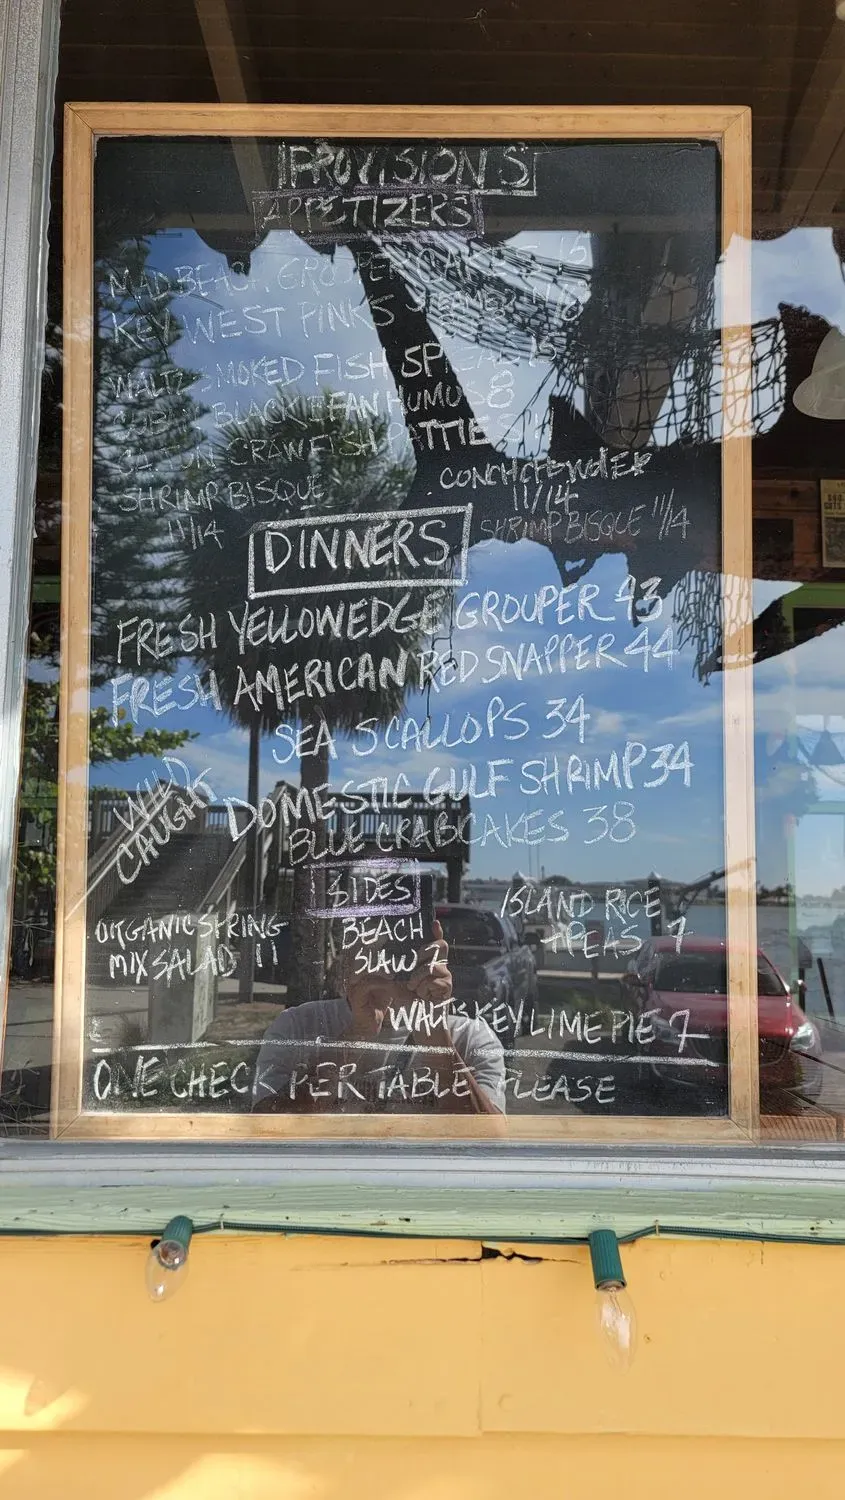 PROVISIONS
APPETIZERS
MAD BEACH GROUPER CAKES 15
KEY WEST PINKS STEAMED
WALT'S SMOKED FISH SPREAD 15
CUBAN BLACK BEAN HUMUS 8
CRAWFISH PATTIES
SHRIMP BISQUE
11/14
CONCH CHOWDER
11/14
SHRIMP BISQUE 11/14
DINNERS
FRESH YELLOWEDGE GROUPER 43
FRESH AMERICAN RED SNAPPER 44
SEA SCALLOPS 34
WILD
CAUGHT
DOMESTIC GULF SHRIMP 34
BLUE CRABCAKES 38
SIDES
ORGANIC SPRING
MIX SALAD 11
BEACH
SLAW 7
ISLAND RICE
+PEAS 7
WALT'S KEY LIME PIE 7
ONE CHECK PER TABLE PLEASE